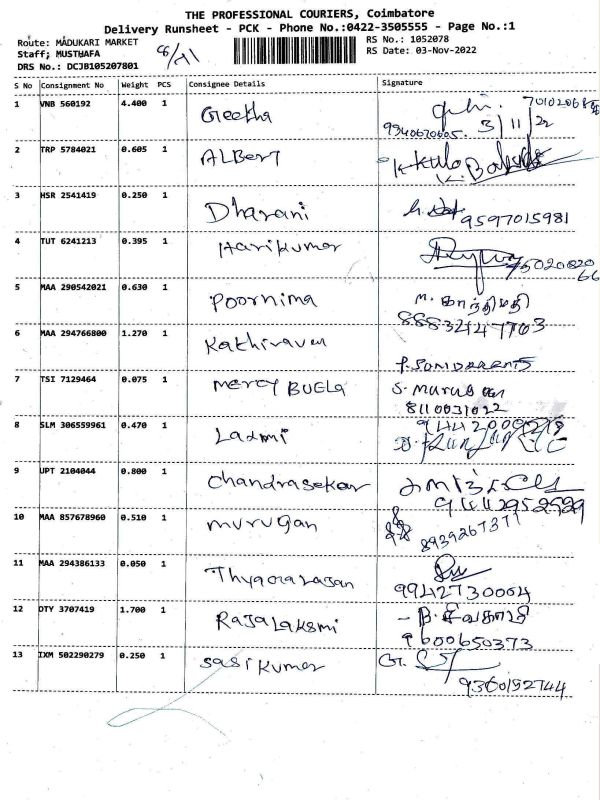 THE PROFESSIONAL COURIERS, Coimbatore
Delivery Runsheet - PCK - Phone No.:0422-3505555 - Page No.:1
Route: MADUKARI MARKET
Staff; MUSTHAFA
DRS No.: DCJB105207801
RS No.: 1052078
RS Date: 03-Nov-2022
S No Consignment No Weight PCS Consignee Details Signature
1 VNB 560192 4.400 1 Geetha
3/11/22
2 TRP 5784021 0.605 1 ALBert
3 HSR 2541419 0.250 1 Dharani
9597015981
4 TUT 6241213 0.395 1 Harikumar
5 MAA 290542021 0.630 1 Poornima
M. காந்திமதி
6 MAA 294766800 1.270 1 Kathiravan
7 TSI 7129464 0.075 1 mercy BUELA
S. Murugan
8110031022
8 SLM 306559961 0.470 1 Laxmi
9 UPT 2104044 0.800 1 Chandrasekar
10 MAA 857678960 0.510 1 murugan
8939267371
11 MAA 294386133 0.050 1 Thyagarajan
99427 30064
12 DTY 3707419 1.700 1 RAJALAKSMI
B. சிவகாமி
9600650373
13 IXM 502290279 0.250 1 SASIKUMAR
9360192744